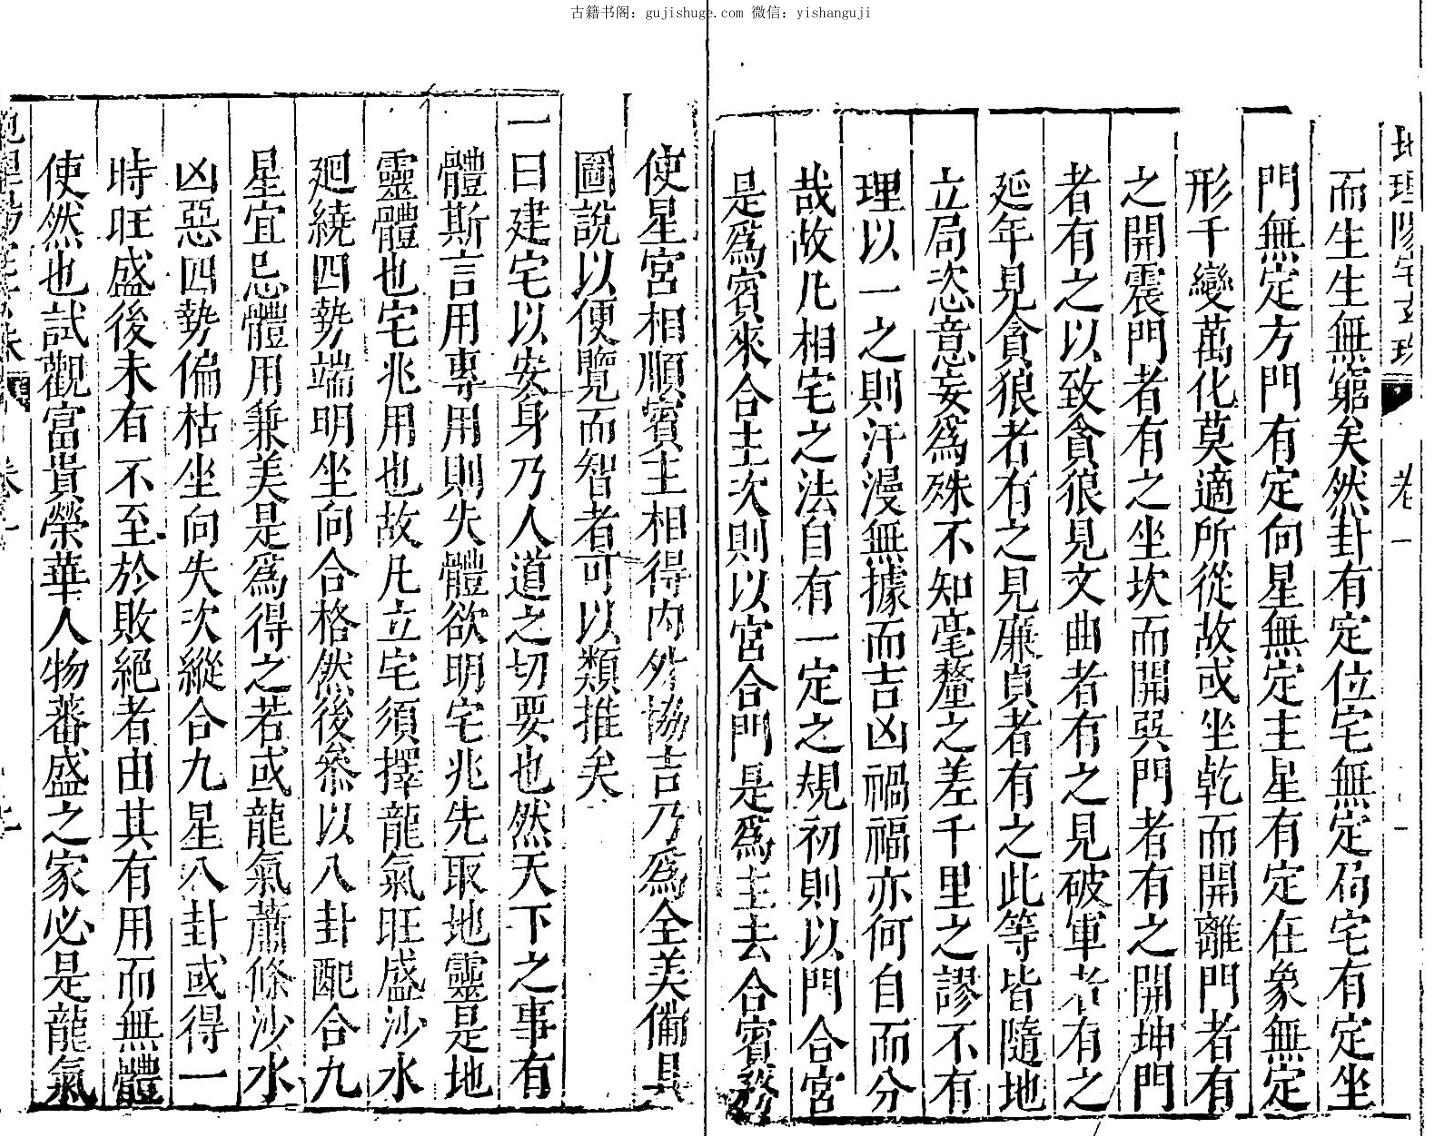 古籍书阁：gujishuge.com 微信：yishanguji
地理陽宅玄珠 卷一 一
而生生無窮矣然卦有定位宅無定局宅有定坐
門無定方門有定向星無定主星有定在象無定
形千變萬化莫適所從故或坐乾而開離門者有
之開震門者有之坐坎而開巽門者有之開坤門
者有之以致貪狼見文曲者有之見破軍者有之
延年見貪狼者有之見廉貞者有之此等皆隨地
立局恣意妄為殊不知毫釐之差千里之謬不有
理以一之則汗漫無據而吉凶禍福亦何自而分
哉故凡相宅之法自有一定之規初則以門合宮
是為賓來合主次則以宮合門是為主去合賓務
使星宮相順賓主相得内外協吉乃為全美備具
圖說以便覽而智者可以類推矣
一曰建宅以安身乃人道之切要也然天下之事有
體斯言用專用則失體欲明宅兆先取地靈是地
靈體也宅兆用也故凡立宅須擇龍氣旺盛沙水
廻繞四勢端明坐向合格然後叅以八卦配合九
星宜忌體用兼美是為得之若或龍氣蕭條沙水
凶惡四勢偏枯坐向失次縱合九星八卦或得一
時旺盛後未有不至於敗絕者由其有用而無體
使然也試觀富貴榮華人物蕃盛之家必是龍氣